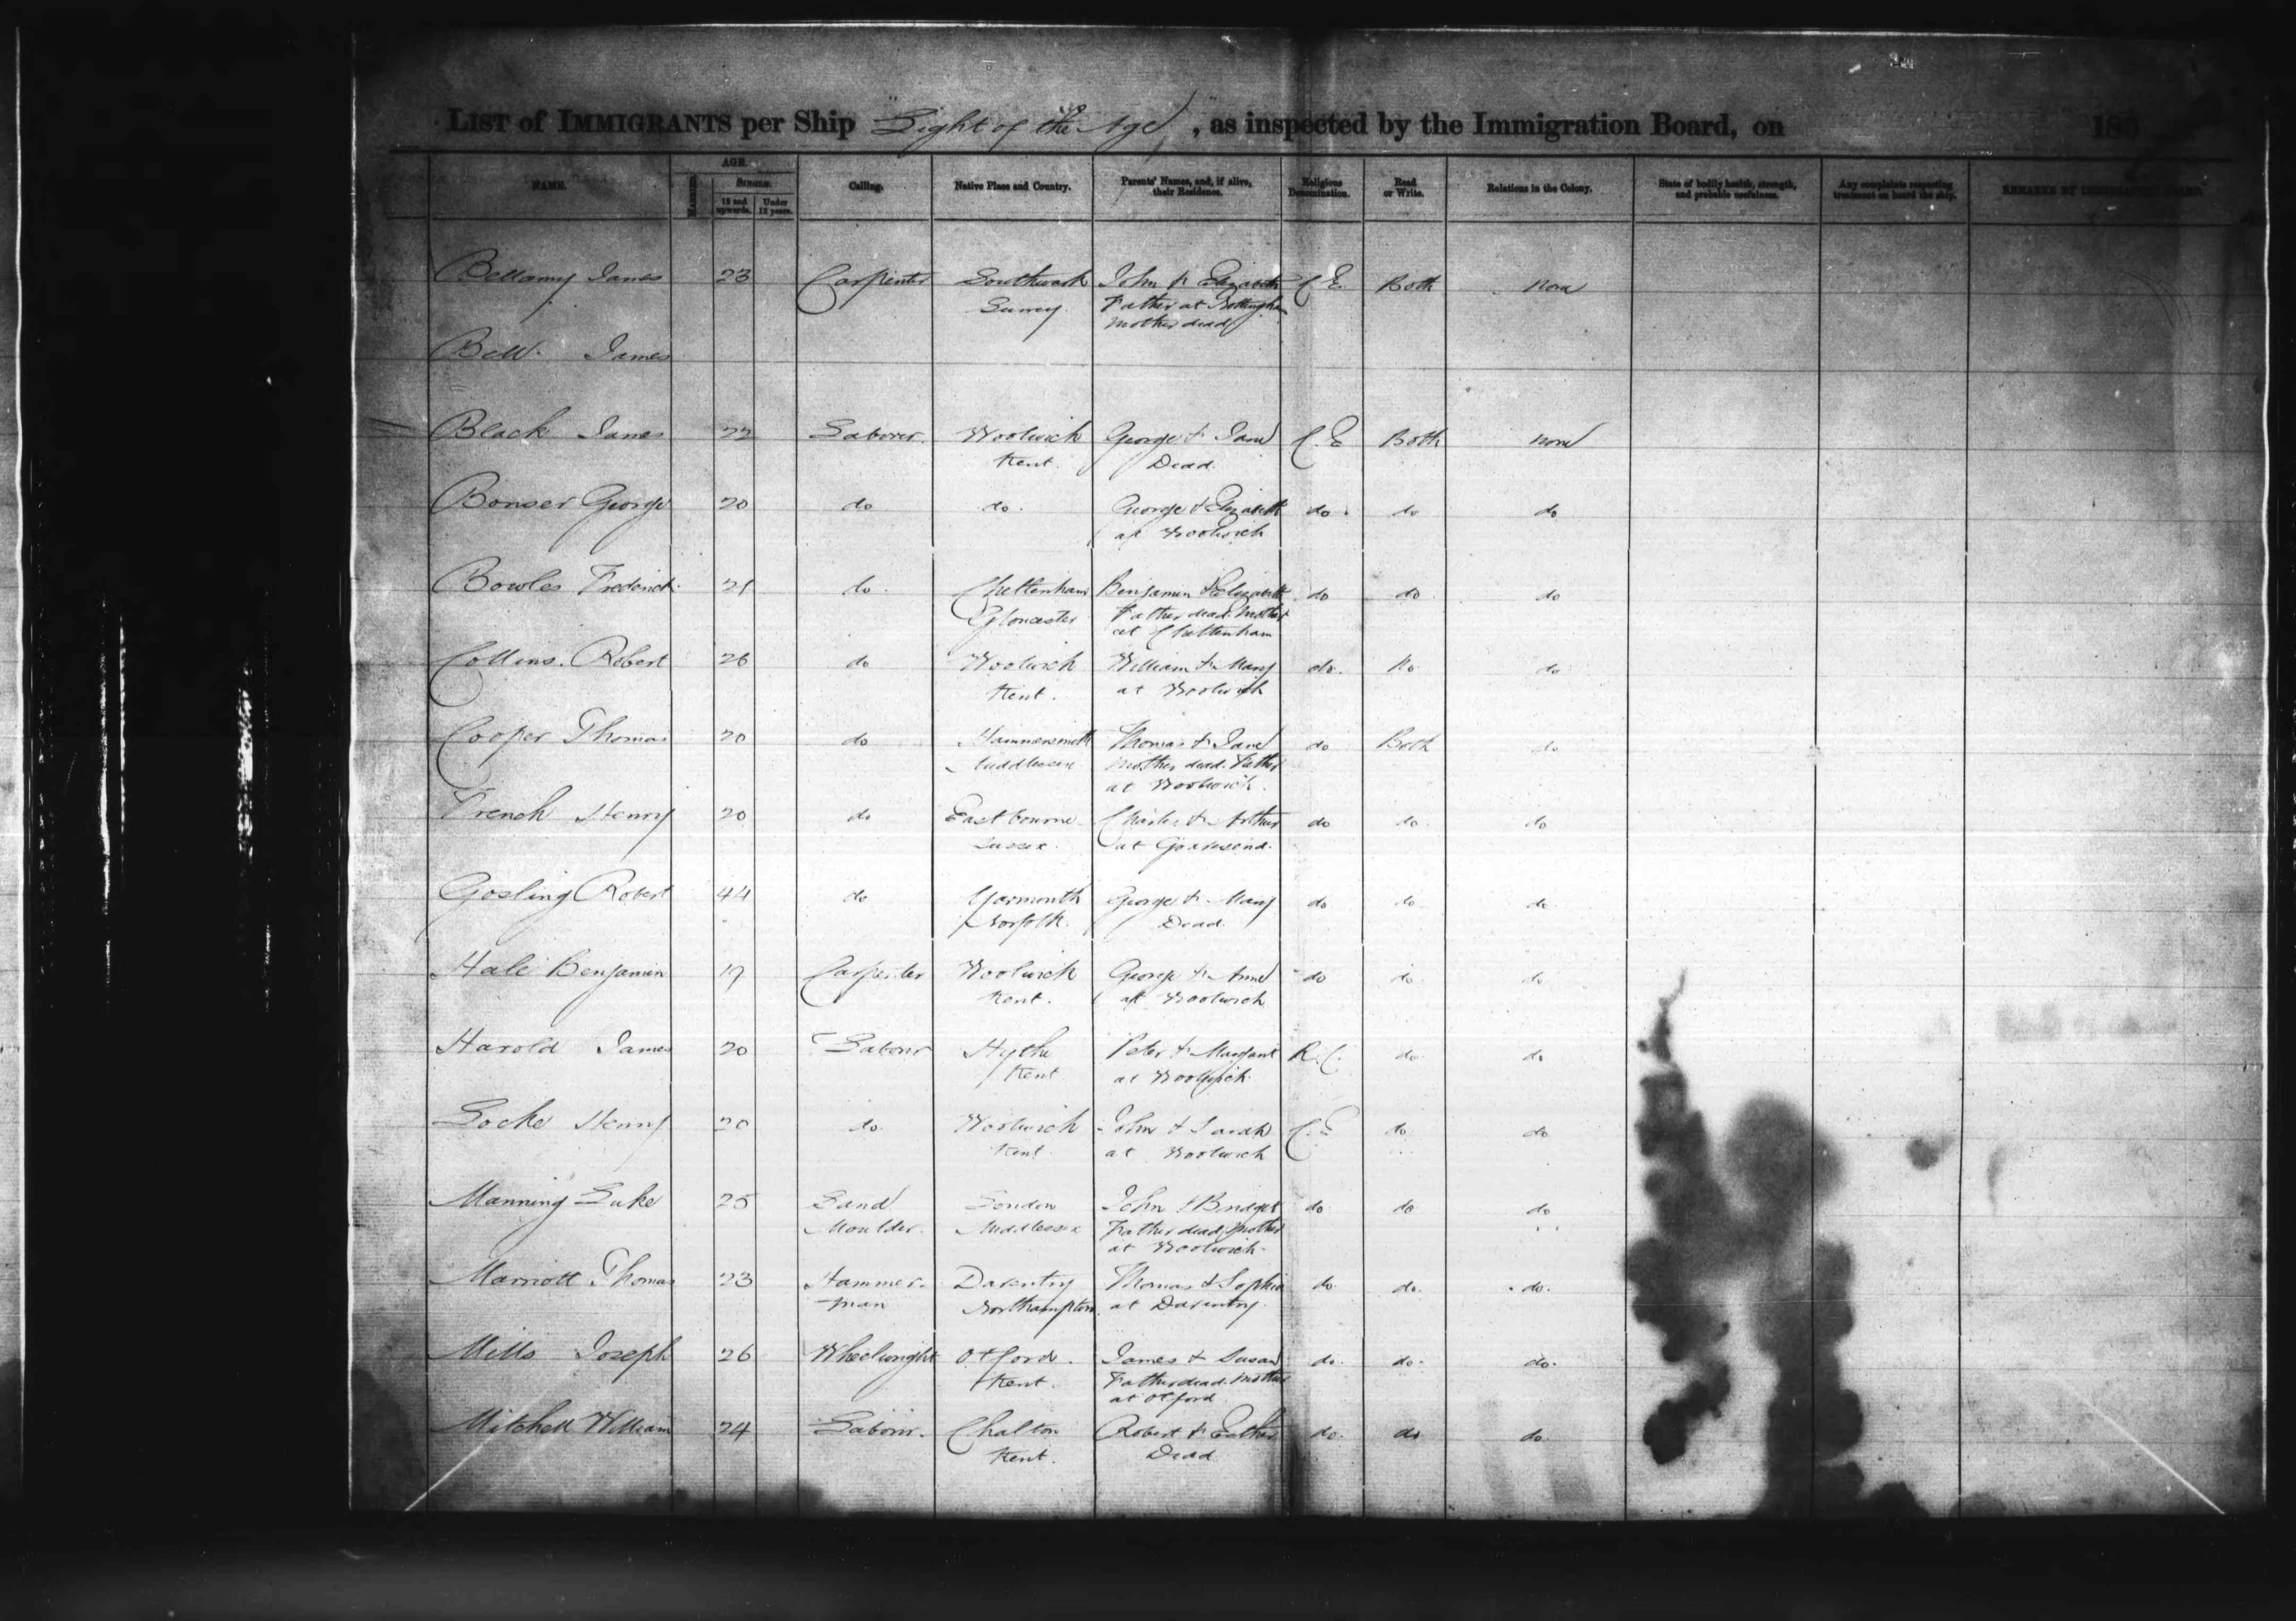 LIST of IMMIGRANTS per Ship "Light of the Age", as inspected by the Immigration Board, on 185
NAME. MARRIED. AGE. SINGLE. 12 and upwards. Under 12 years. Calling. Native Place and Country. Parents' Names, and, if alive, their Residence. Religious Denomination. Read or Write. Relations in the Colony. State of bodily health, strength, and probable usefulness. Any complaints respecting treatment on board the ship. REMARKS BY IMMIGRATION BOARD.
Bellamy James 23 Carpenter Southwark John & Elizabeth C.E. Both None
Surrey Father at Nottingham
Mother dead
Bell James
Black James 22 Laborer Woolwich George & Jane C.E Both None
Kent. Dead.
Bonser George 20 do do. George & Elizabeth do. do do
at Woolwich
Bowles Frederick 21 do. Cheltenham Benjamin & Elizabeth do do do
Gloucester Father dead Mother
at Cheltenham
Collins. Robert 26 do Woolwich William & Mary do. No do
Kent. at Woolwich
Cooper Thomas 20 do Hammersmith Thomas & Jane do Both do
Middlesex Mother dead. Father
at Woolwich.
French Henry 20 do Eastbourne Charles & do do do
Sussex. at Gravesend.
Gosling Robert 44 do Yarmouth George & Mary do do do
Norfolk. Dead.
Hale Benjamin 19 Carpenter Woolwich George & Anne do do do
Kent. at Woolwich
Harold James 20 Labourer Hythe Peter & Margaret R.C. do do
Kent at Woolwich
Locke Henry 20 do. Woolwich John & Sarah C.E do do
Kent. at Woolwich
Manning Luke 25 Sand London John & Bridget do do do
Moulder. Middlesex Father dead Mother
at Woolwich.
Marriott Thomas 23 Hammer- Daventry Thomas & Sophia do. do. do.
man Northampton at Daventry.
Mills Joseph 26 Wheelwright Otford. James & Susan do. do. do.
Kent. Father dead. Mother
at Otford
Mitchell William 24 Labour. Charlton Robert & Esther do. do do.
Kent. Dead